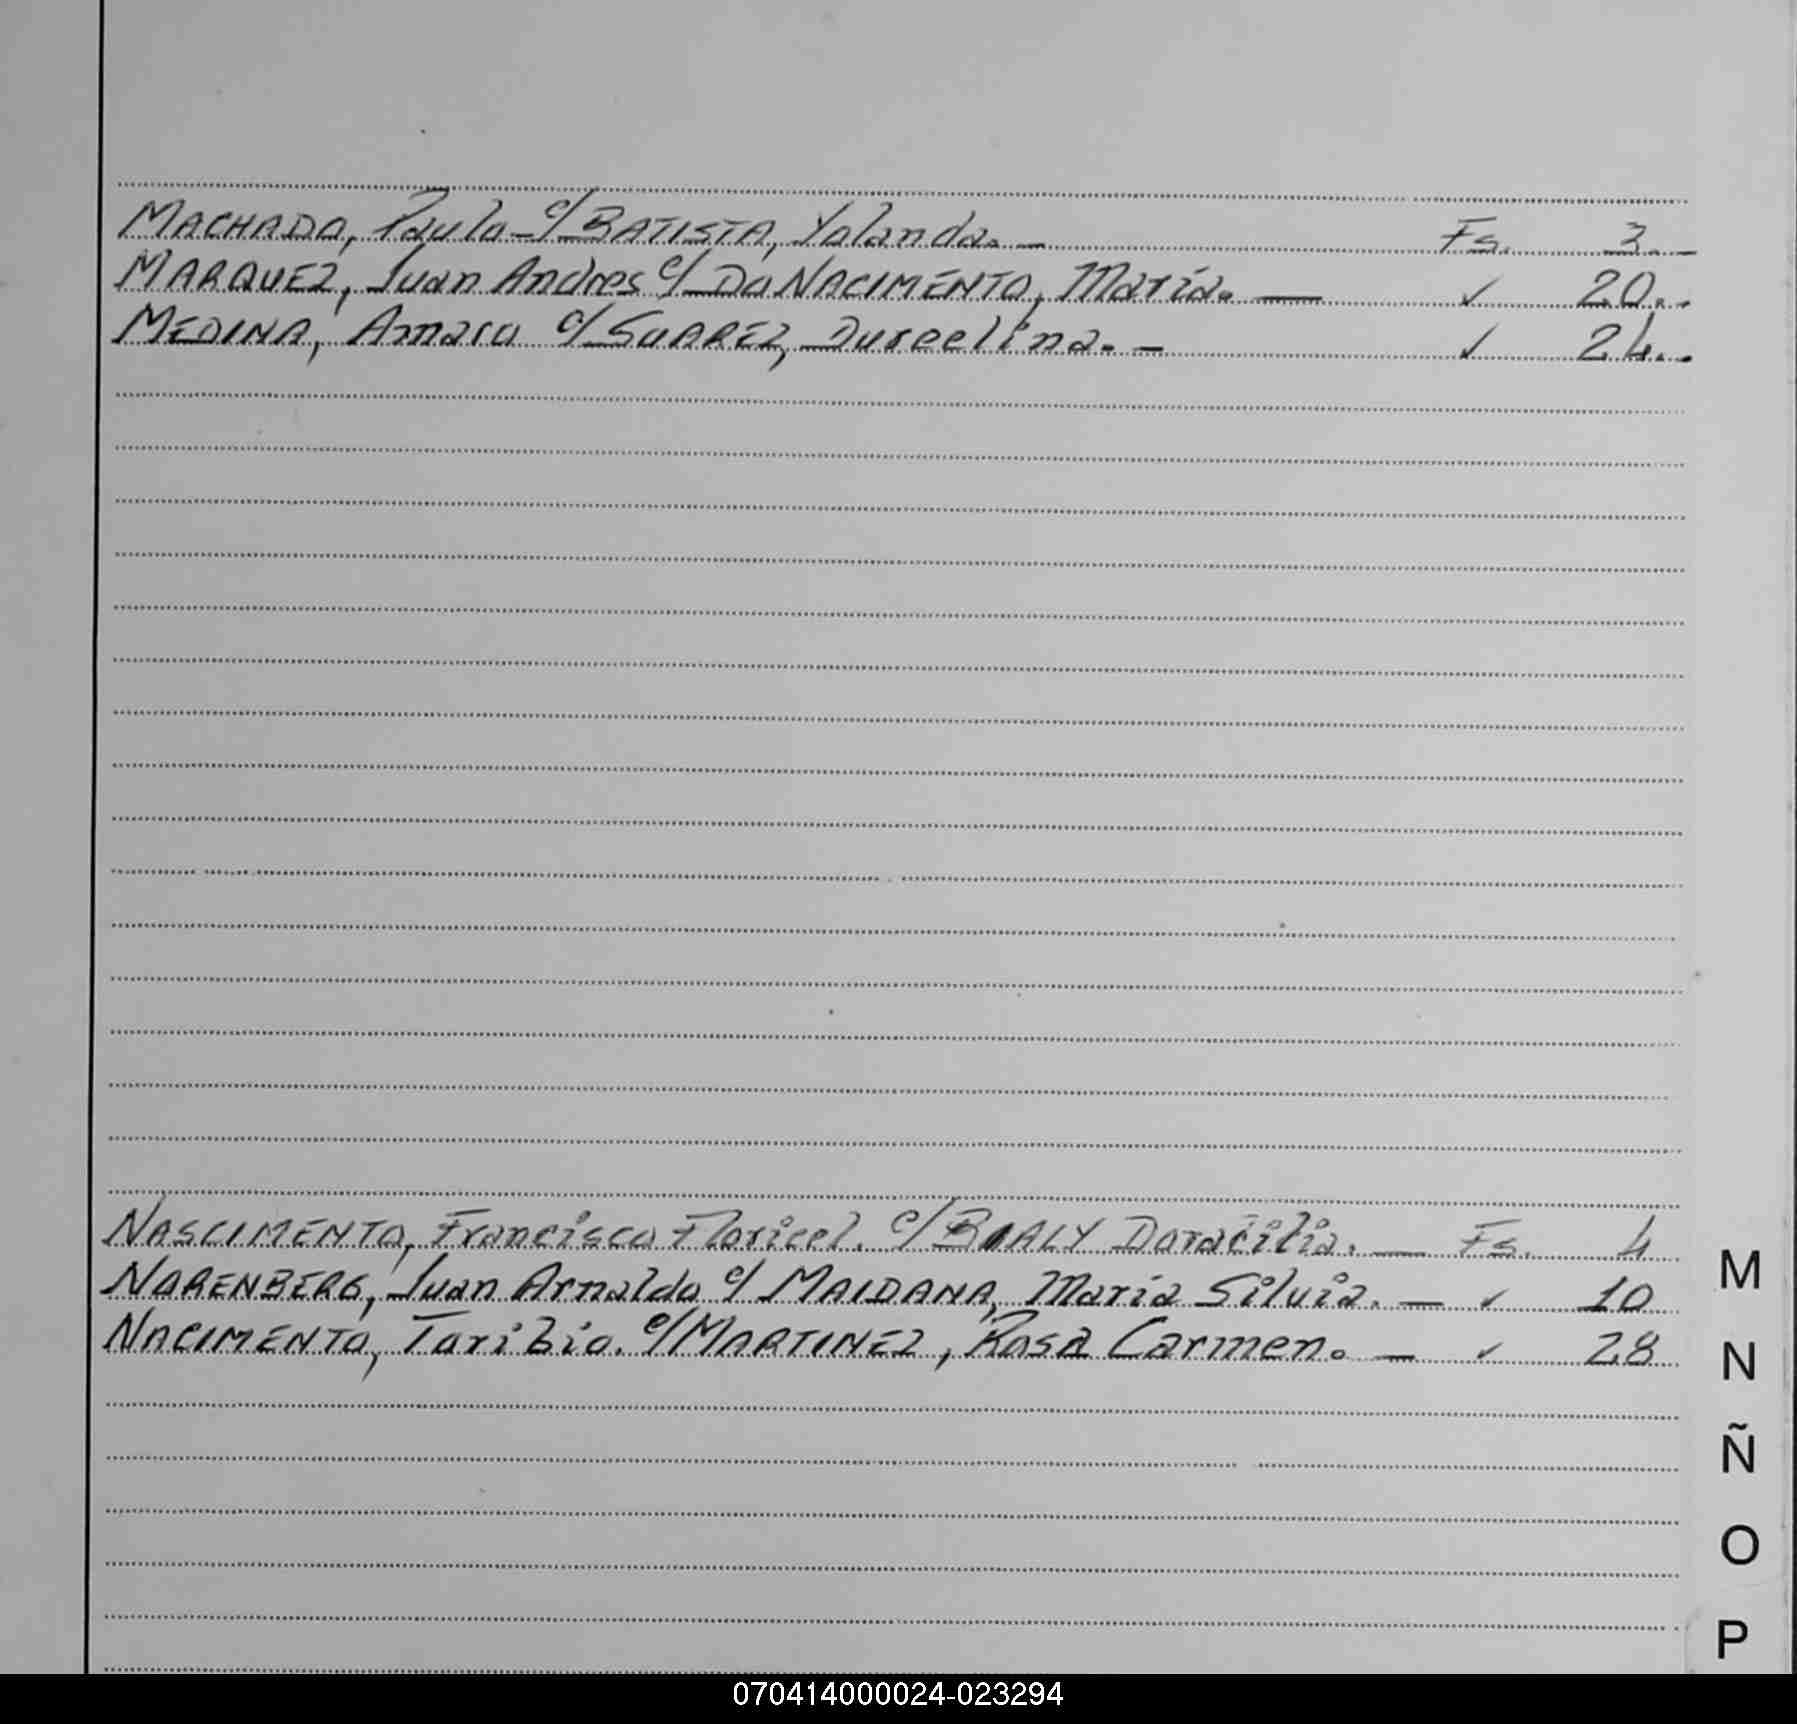 MACHADO, Paulo c/ BATISTA, Yolanda. — Fs. 3. —
MARQUEZ, Juan Andres c/ Do NACIMENTO, María. — ✓ 20..
MEDINA, Amaro c/ SUAREZ, Durcelina. — ✓ 24..
NASCIMENTO, Francisco Floricel. c/ BEALY Doracilia. — Fs. 4
NORENBERG, Juan Arnoldo c/ MAIDANA, María Silvia. — ✓ 10
NACIMENTO, Toribio. c/ MARTINEZ, Rosa Carmen. — ✓ 28
M
N
Ñ
O
P
070414000024-023294